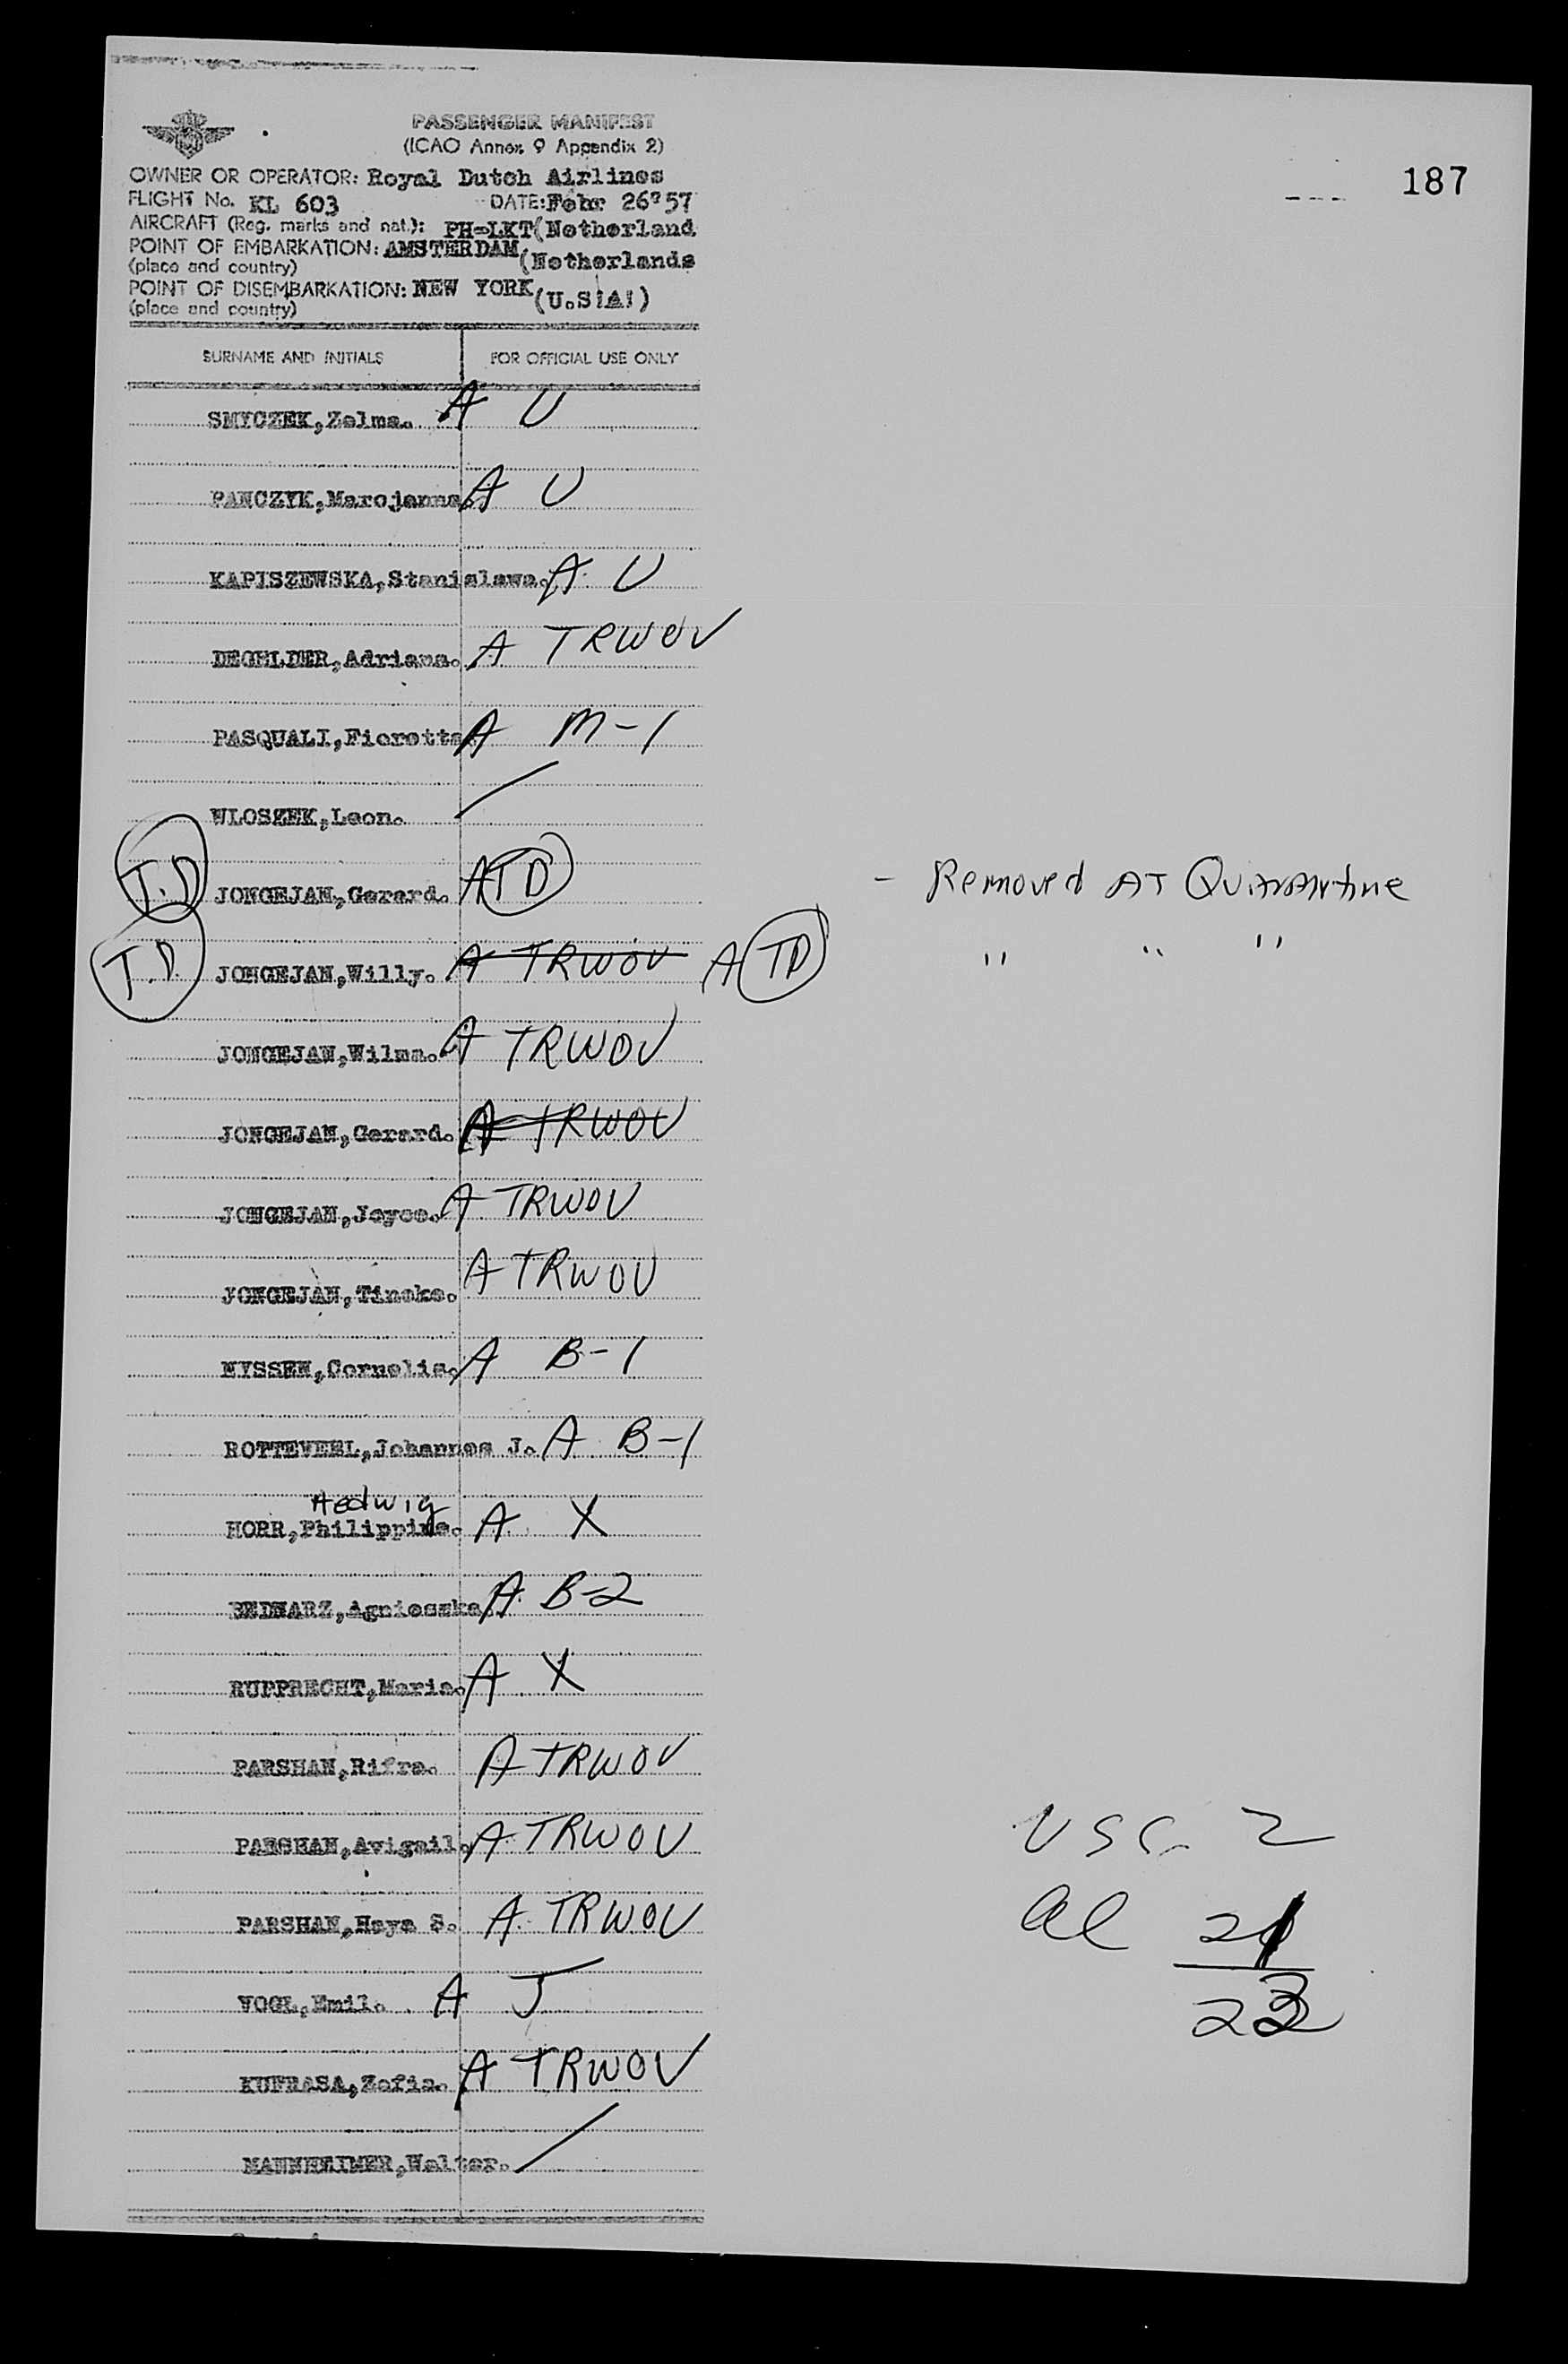 187
PASSENGER MANIFEST
(ICAO Annex 9 Appendix 2)
OWNER OR OPERATOR: Royal Dutch Airlines
FLIGHT No. KL 603 DATE: Febr 26'57
AIRCRAFT (Reg. marks and nat.): PH-LKT (Netherland
POINT OF EMBARKATION: AMSTERDAM (Netherlands
(place and country)
POINT OF DISEMBARKATION: NEW YORK (U.S.A.)
(place and country)
SURNAME AND INITIALS FOR OFFICIAL USE ONLY
SMYCZEK, Zelma. A U
PANCZYK, Marojanna. A U
KAPISZEWSKA, Stanislawa. A U
DEGELDER, Adriana. A TRWOV
PASQUALI, Fioretta. A M-1
WLOSZEK, Leon.
T.D JONGEJAN, Gerard. A TD - Removed AT Quarantine
T.D. JONGEJAN, Willy. A TRWOV A TD " " "
JONGEJAN, Wilma. A TRWOV
JONGEJAN, Gerard. A TRWOV
JONGEJAN, Joyce. A TRWOV
JONGEJAN, Tineke. A TRWOV
NYSSEN, Cornelis. A B-1
ROTTEVEEL, Johannes J. A B-1
Hedwig
HORR, Philippine. A X
BEDNARZ, Agnieszka. A B-2
RUPPRECHT, Maria. A X
PARSHAN, Rifra. A TRWOV
PARSHAN, Avigail. A TRWOV
USC 2
PARSHAN, Haya S. A TRWOV
al 21
VOGL, Emil. A J
23
KUFRASA, Zofia. A TRWOV
MANNHEIMER, Walter.